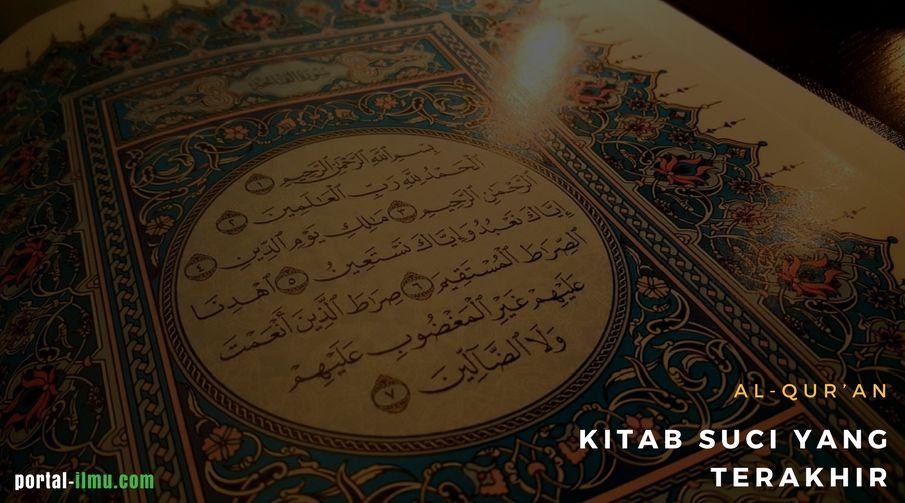 سُورَةُ الفَاتِحَةِ
بِسْمِ ٱللَّهِ ٱلرَّحْمَٰنِ ٱلرَّحِيمِ ١
ٱلْحَمْدُ لِلَّهِ رَبِّ ٱلْعَٰلَمِينَ ٢
ٱلرَّحْمَٰنِ ٱلرَّحِيمِ ٣ مَٰلِكِ يَوْمِ ٱلدِّينِ ٤
إِيَّاكَ نَعْبُدُ وَإِيَّاكَ نَسْتَعِينُ ٥ ٱهْدِنَا
ٱلصِّرَٰطَ ٱلْمُسْتَقِيمَ ٦ صِرَٰطَ ٱلَّذِينَ أَنْعَمْتَ
عَلَيْهِمْ غَيْرِ ٱلْمَغْضُوبِ عَلَيْهِمْ
وَلَا ٱلضَّآلِّينَ ٧
AL-QUR’AN
KITAB SUCI YANG
TERAKHIR
portal-ilmu.com